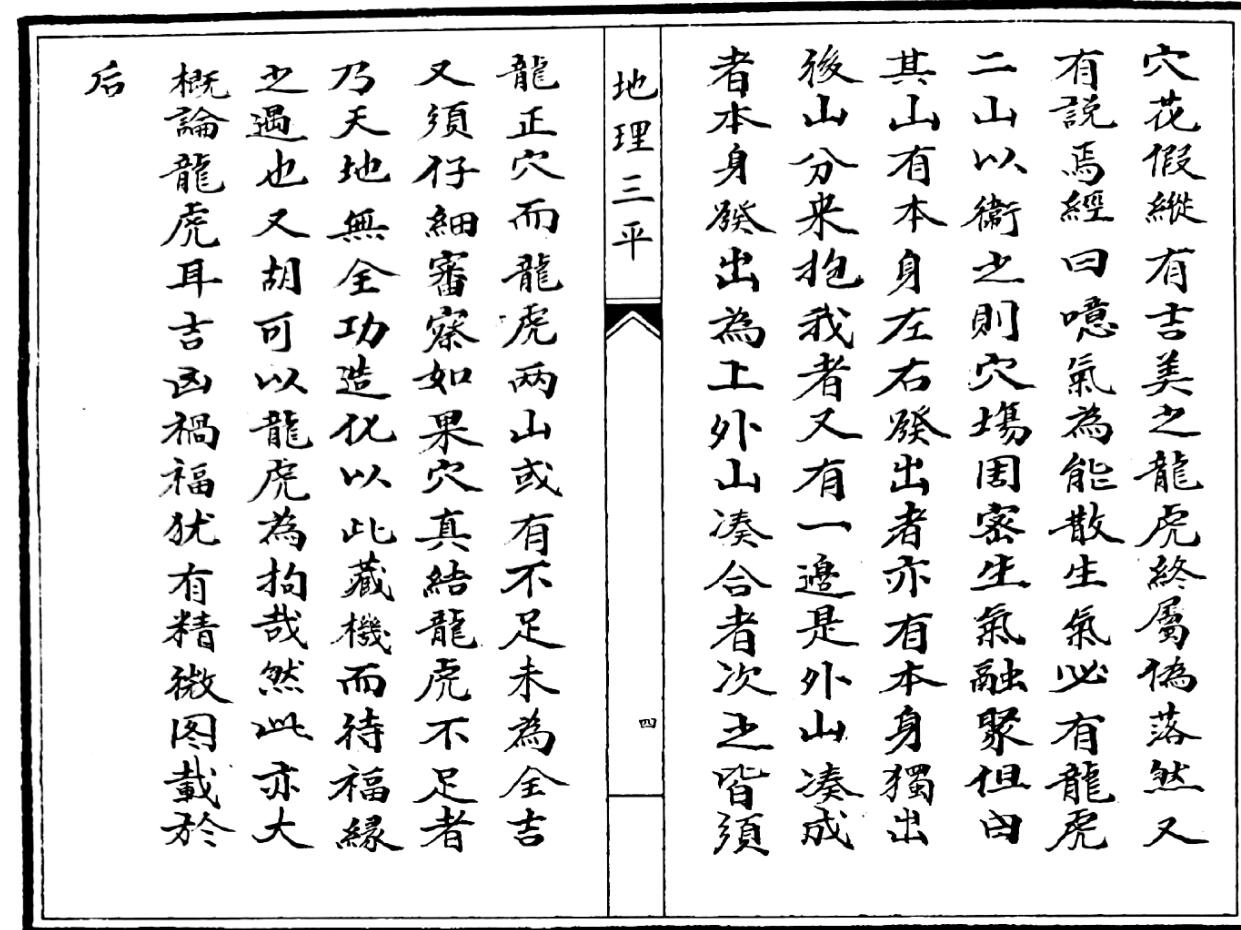 穴花假縱有吉美之龍虎終屬偽落然又
有説焉經曰噫氣為能散生氣必有龍虎
二山以衛之則穴塲周密生氣融聚但内
其山有本身左右發出者亦有本身獨出
後山分来抱我者又有一邊是外山凑成
者本身發出為上外山凑合者次之皆須
地理三平
四
龍正穴而龍虎两山或有不足未為全吉
又須仔細審察如果穴真結龍虎不足者
乃天地無全功造化以此藏機而待福緣
之遇也又胡可以龍虎為拘哉然此亦大
概論龍虎耳吉凶禍福犹有精微图載於
后